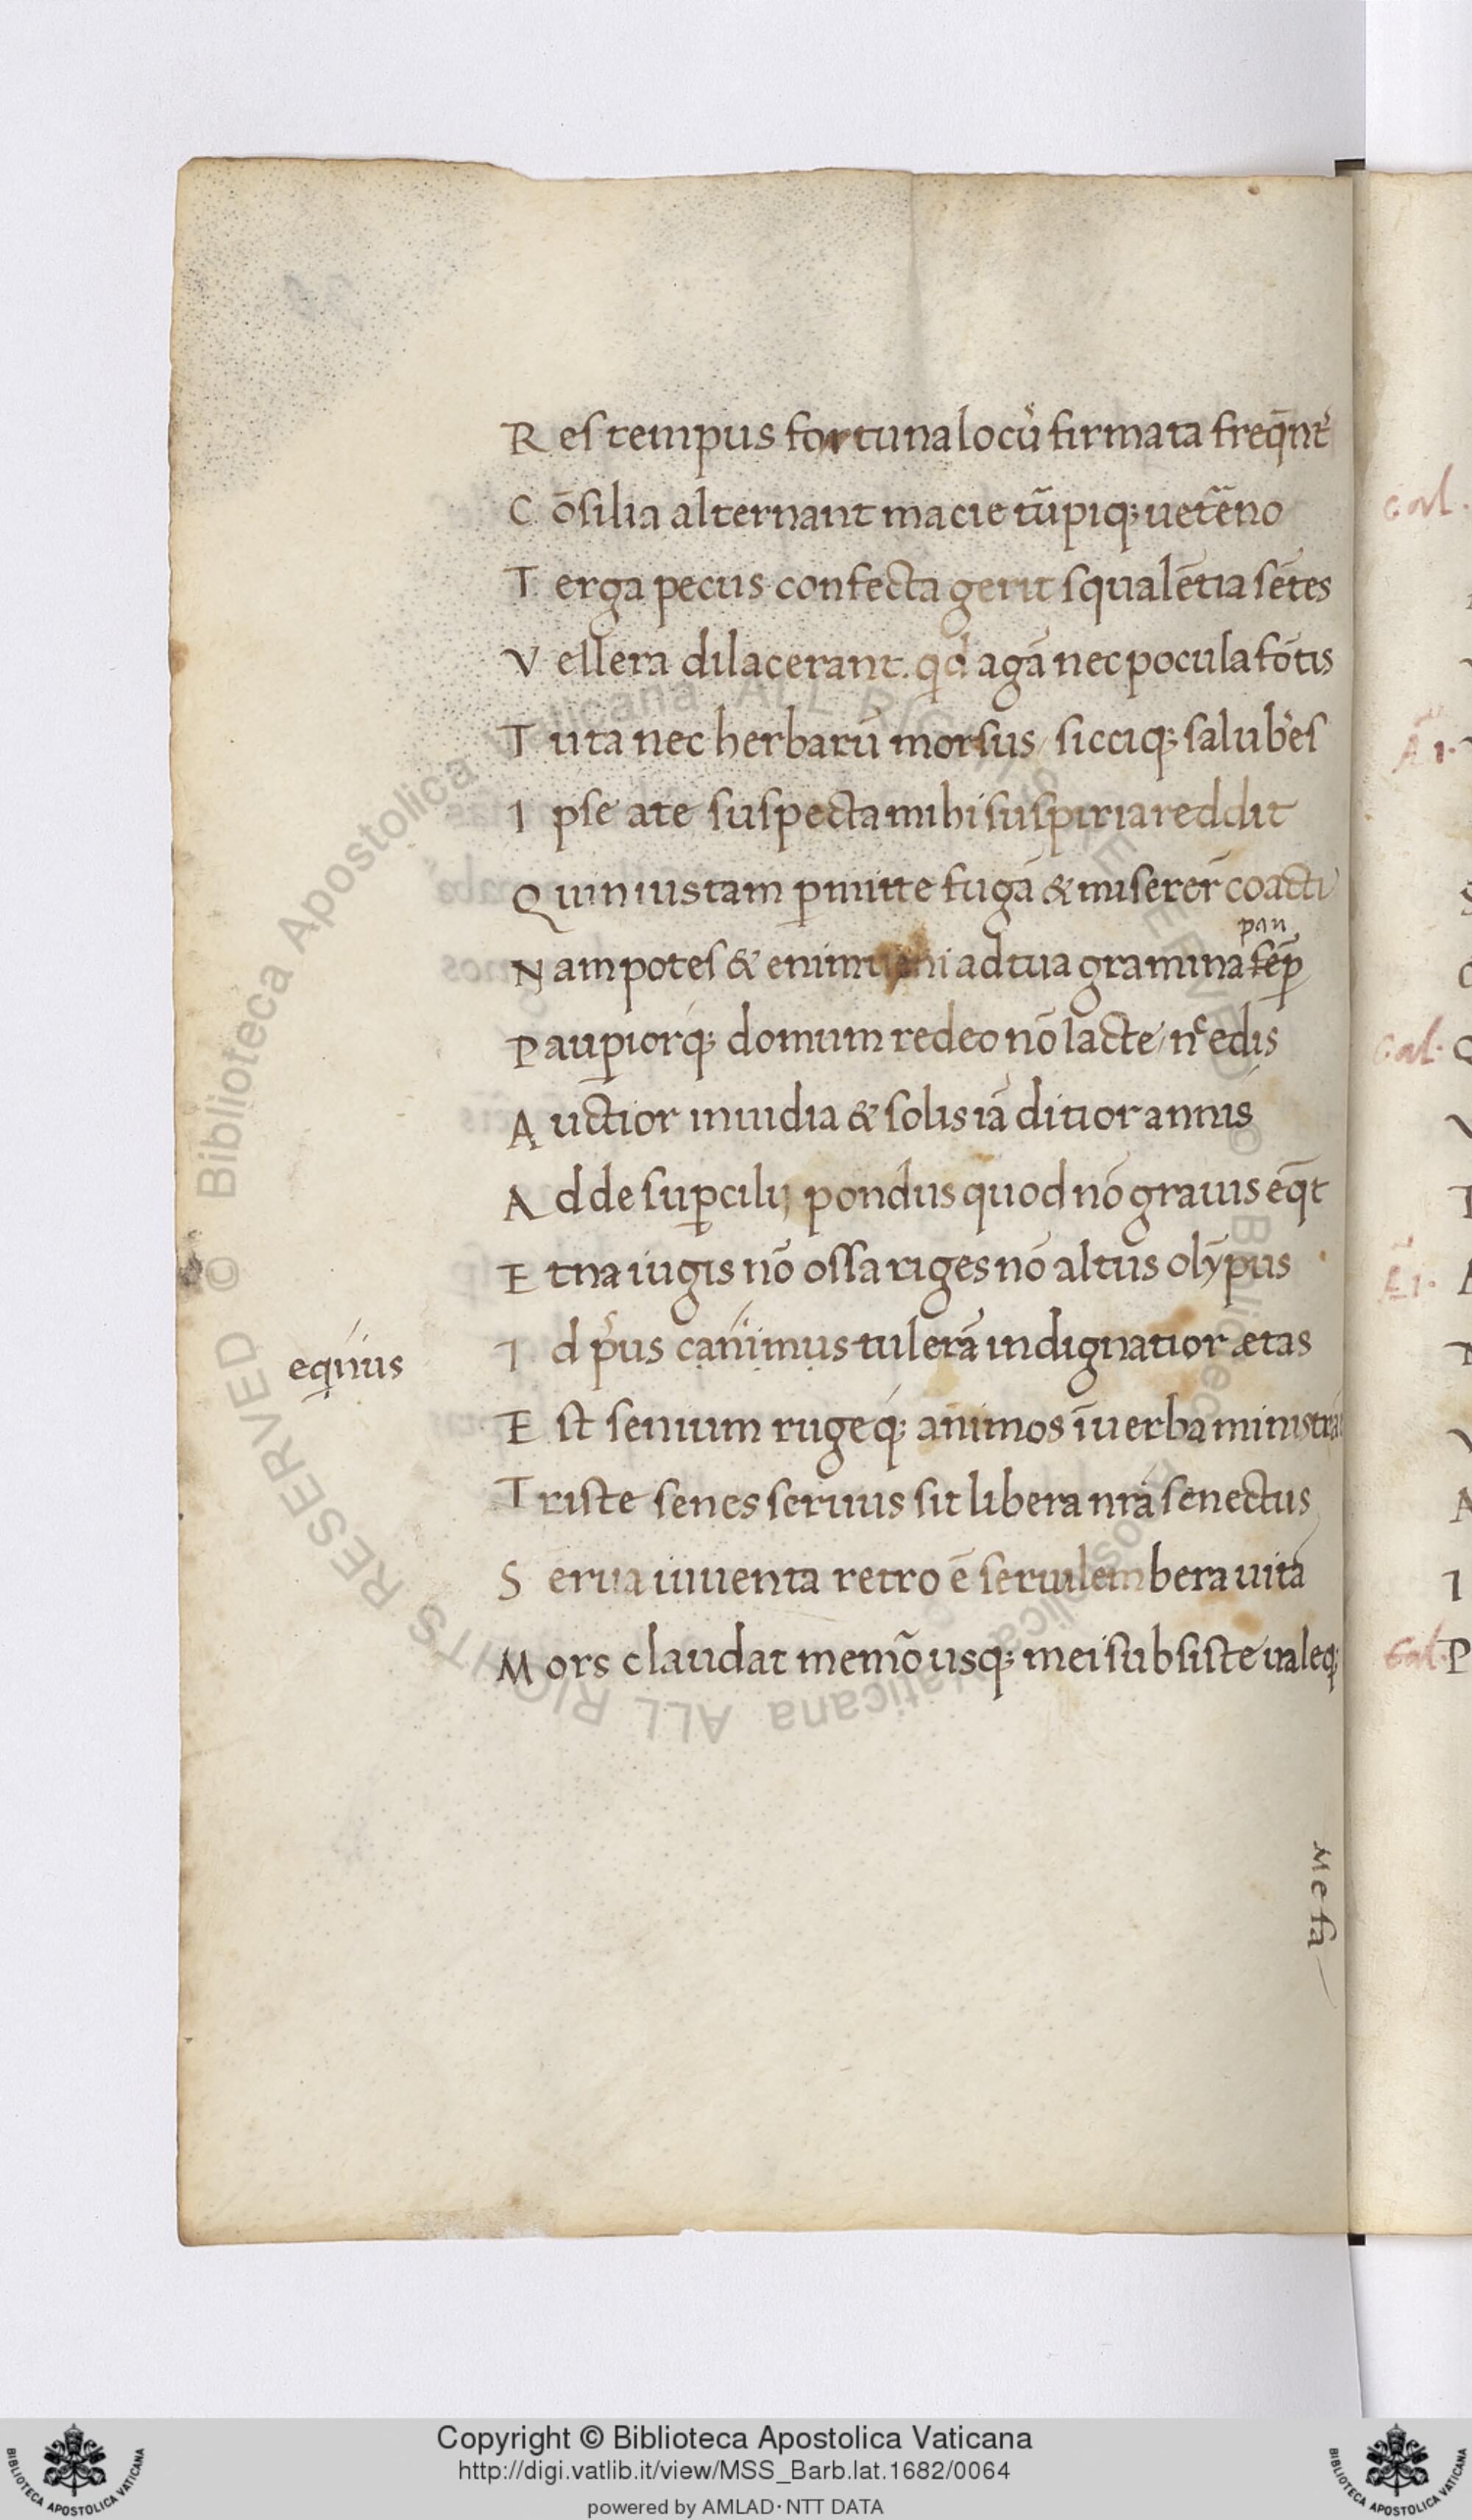 R es tempus fortuna locũ firmata freq̃nt̉
C õsilia alternant macie tũpiq; uet̃eno
T erga pecus confecta gerit squalẽtia sẽtes
V ellera dilacerant. qd agã nec pocula fõtis
T uta nec herbarũ morsus / siccıq; salub̉es
I pse ate suspecta mihi suspiria reddit
Q uin iustam ꝑmitte fugã & miserer̃ coacti
pau
N am potes & enim ueni ad tua gramina sẽꝑ
P auꝑiorq́; domum redeo nõ lacte / nͨ edis
A uctior inuidia & solis iã ditior annis
A dde suꝑcilij pondus quod nõ grauis eq̃t
E tna iugis nõ ossa riges nõ altus olỹpus
I d p̉us canimus tulerã indignatior ætas
equíus
E st senium rugeq́; animos ĩuerba ministrã
T riste senes seruus sit libera nr̃a senectus
S erua iuuenta retro ẽ seruilem bera uitã
M ors claudat memõ usq; mei subsiste ualeq;
Me fa
cal.
Cal.
Cal.
Copyright © Biblioteca Apostolica Vaticana
http://digi.vatlib.it/view/MSS_Barb.lat.1682/0064
powered by AMLAD · NTT DATA
BIBLIOTECA APOSTOLICA VATICANA
BIBLIOTECA APOSTOLICA VATICANA